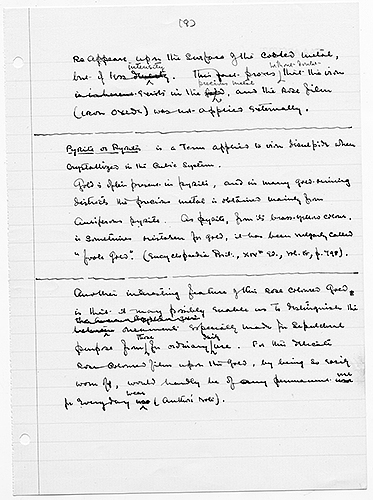 (9)
Re Appear, upon the Surface of the Cooled metal,
but of less intensity. This fact proves, without doubt, that the iron
is inherent exists in the precious metal, and the Rose Film
(Iron Oxide) was not applied externally.
Pyrites or Pyrites is a Term applied to iron disulphide when
crystallized in the Cubic System.
Gold is often present in pyrites, and in many gold-mining
districts the precious metal is obtained mainly from
Auriferous pyrites. As pyrites, from its brass-yellow colour,
is Sometimes mistaken for gold, it has been vulgarly called
"fools Gold". (Encyclopaedia Brit., XIVth Ed., Vol. , p. 798).
Another interesting feature of this rose coloured Gold,
is that it may possibly enable us to distinguish the
between ornaments Especially made for Sepulchral
purpose from those for ordinary daily use. For this delicate
Rose coloured film upon the gold, by being so easily
worn off, would hardly be of any permanent use
for Everyday wear (Author's note).